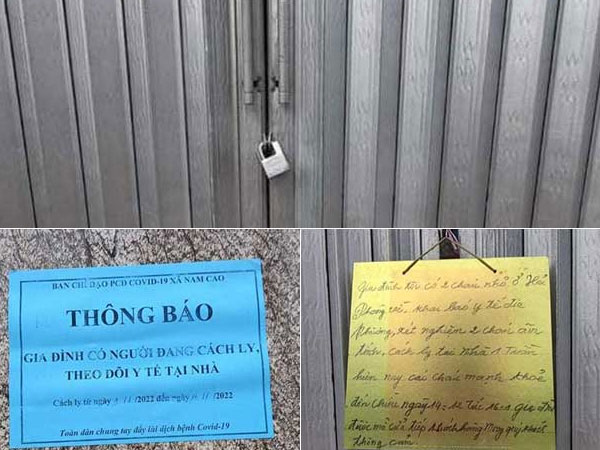 BAN CHỈ ĐẠO PCD COVID-19 XÃ NAM CAO
THÔNG BÁO
GIA ĐÌNH CÓ NGƯỜI ĐANG CÁCH LY,
THEO DÕI Y TẾ TẠI NHÀ
Cách ly từ ngày /2022 đến ngày /2022
Toàn dân chung tay đẩy lùi dịch bệnh Covid-19
Gia đình tôi có 2 cháu nhỏ ở Hải
Phòng về khai báo y tế địa
Phương, xét nghiệm 2 cháu âm
tính, cách ly tại nhà 1 tuần
hiện nay các cháu mạnh khỏe
đến chiều ngày 14 gia đình
được mở cửa tiếp khách mong quý khách
thông cảm.